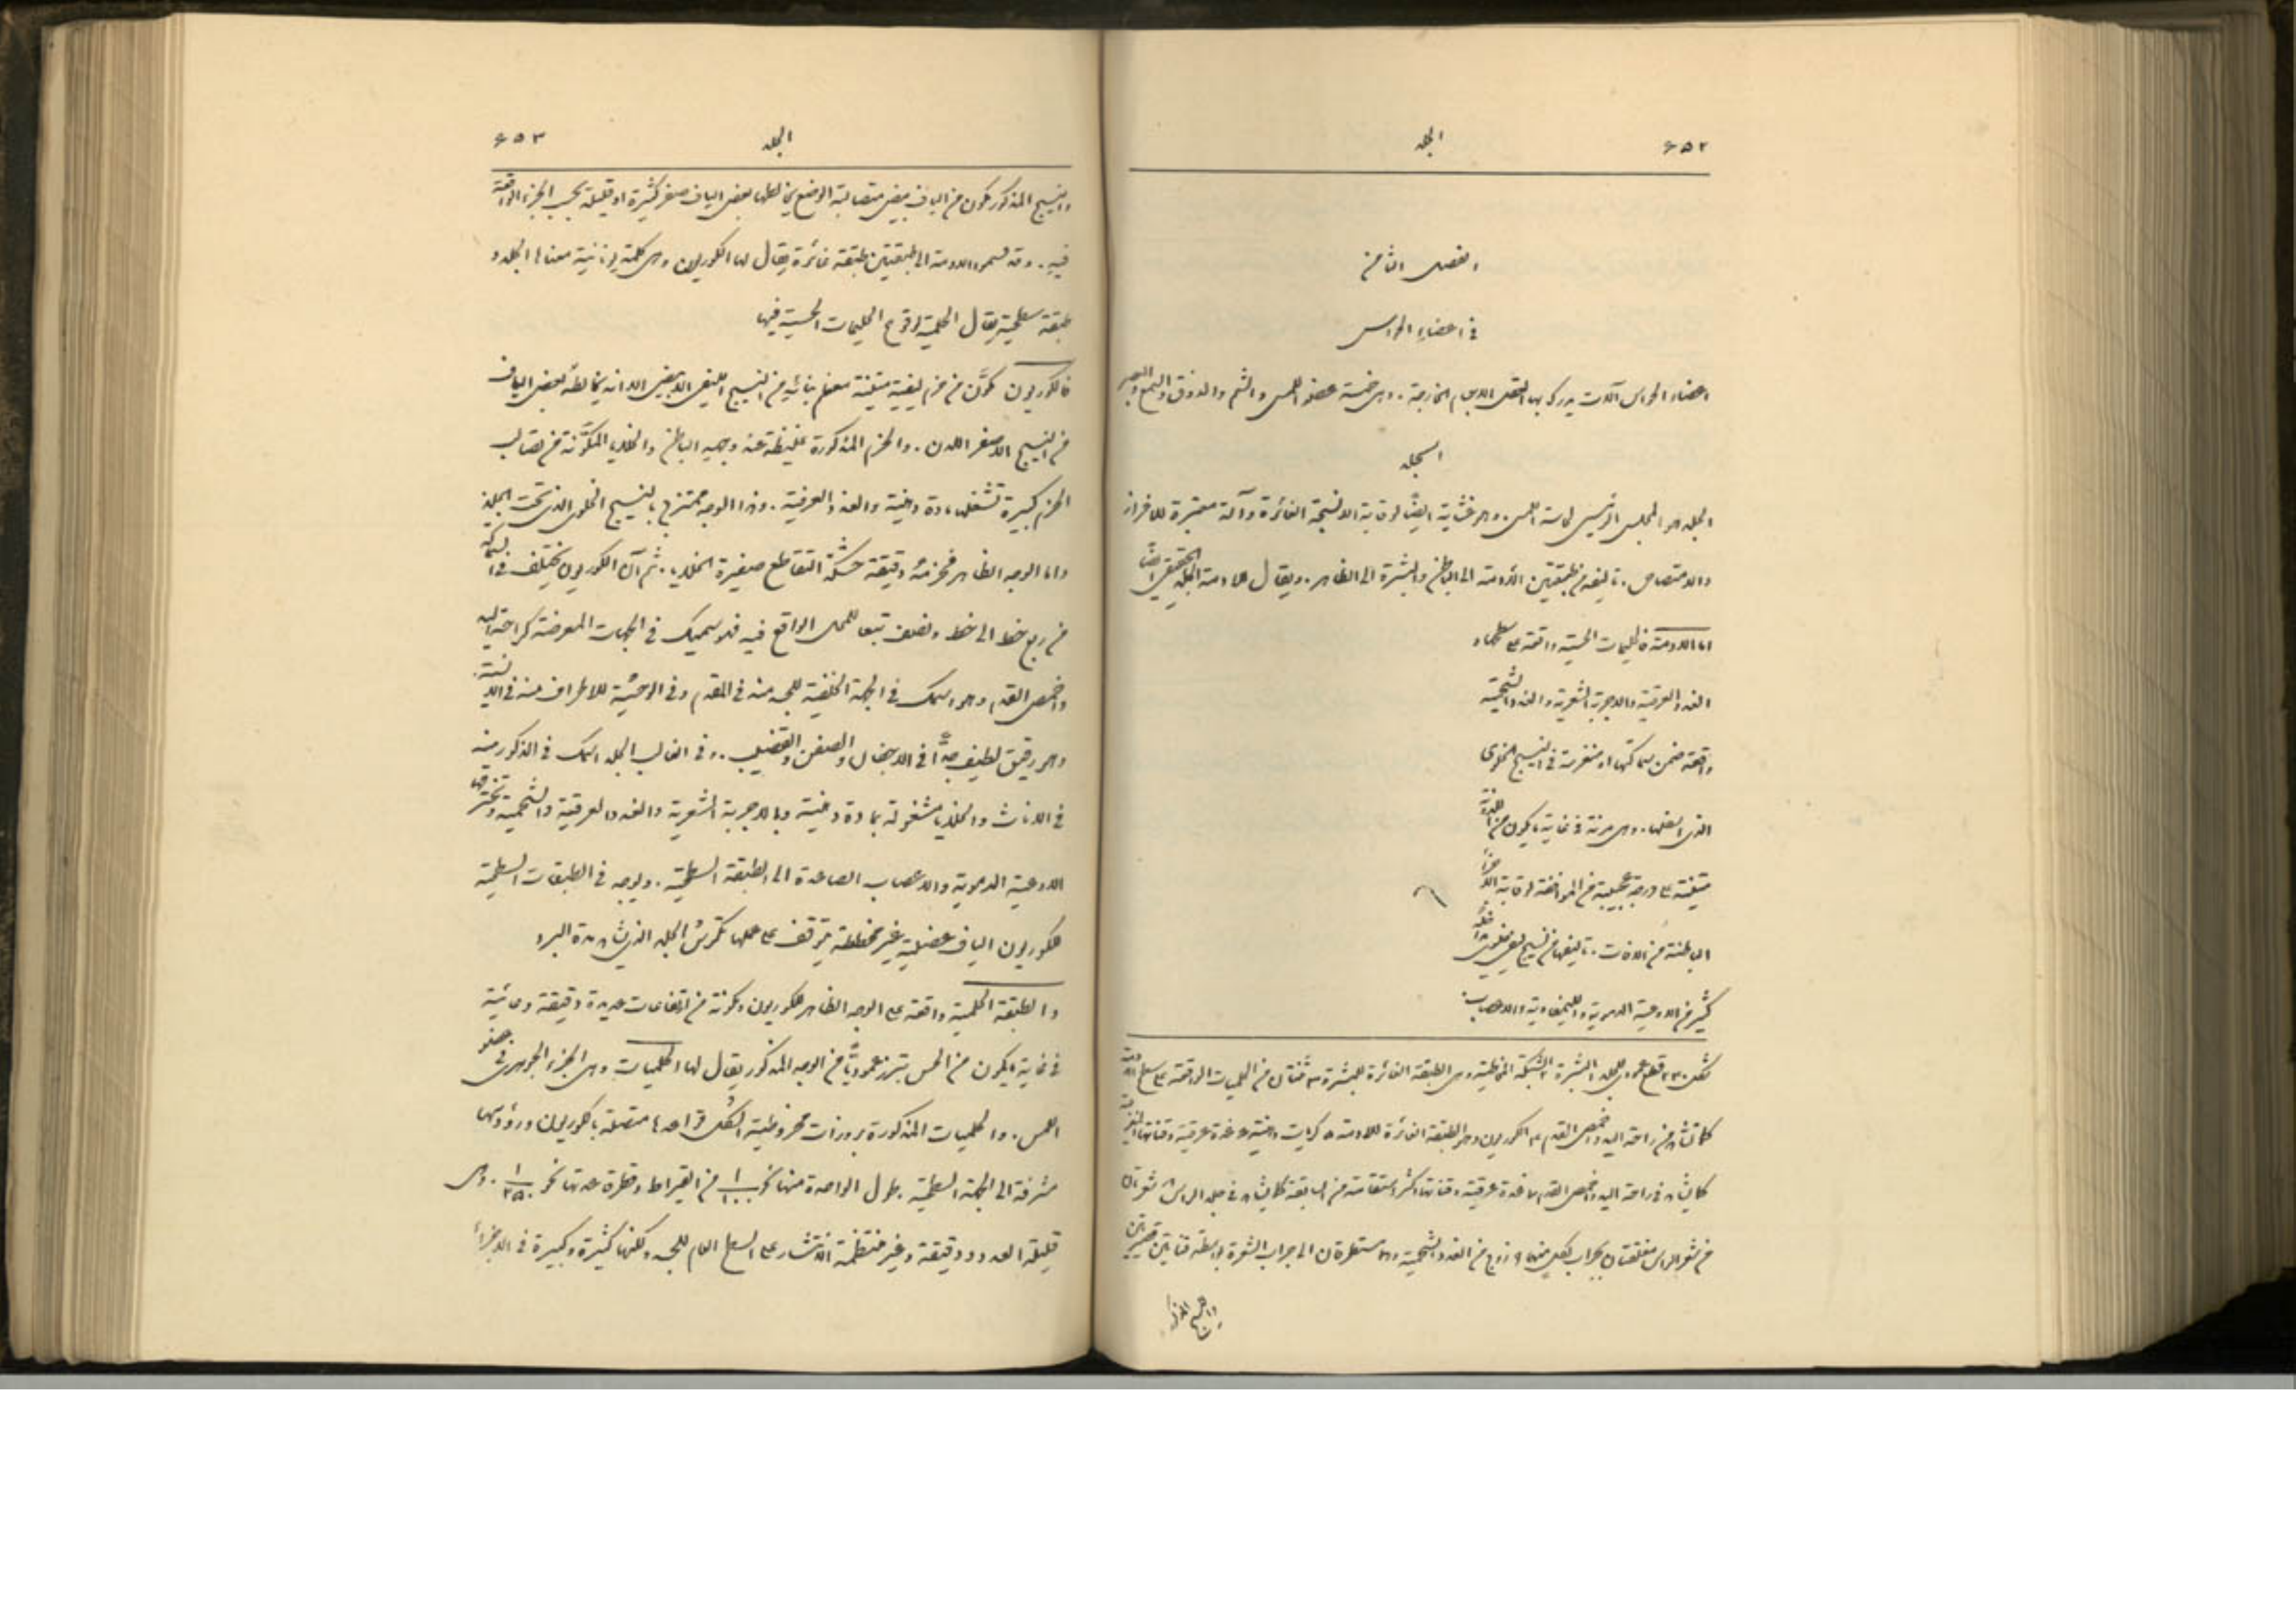 ٦٥٢
الجلد
الفصل الثامن
في اعضاء الحواس
اعضاء الحواس آلات يدرك بها العقل الاجسام الخارجة . وهي خمسة عضو اللمس والشم والذوق والسمع والبصر
الجلد
الجلد هو المجلس الرئيس لحاسة اللمس . وهو غشاء ايضًا لوقاية الانسجة الغائرة وآلة معتبرة للافراز
والامتصاص . تاليفه من طبقتين الأدمة الى الباطن والبشرة الى الظاهر . ويقال للادمة الجلد الحقيقي ايضًا
اما الادمة فالحليمات الحسية واقعة على سطحها و
الغدد العرقية والاجربة الشعرية والغدد الشحمية
واقعة ضمن سماكتها او منغرسة في النسيج الخلوي
الذي اسفلها . وهي مرنة في غاية ما يكون من اللدونة
متينة على درجة عجيبة من الموافقة لوقاية الاجزاء
الباطنة من الآفات . تاليفها من نسيج ليفي خلوي
كثير من الاوعية الدموية والليمفاوية والاعصاب
شكل ٢٣٠ قطع عمودي للجلد ١ البشرة ٢ الشبكة المخاطية وهي الطبقة الغائرة للبشرة ٣ فئتان من الحليمات الواقعة على سطح الادمة
كما تشاهد في راحة اليد واخمص القدم ٤ الكوريون وهو الطبقة الغائرة للادمة ٥ كريات دهنية ٦ غدة عرقية وقناتها
كما يشاهد في راحة اليد واخمص القدم ٧ غدة عرقية وقناتها اكثر استقامة من السابقة كما يشاهد في جلد الراس ٨ شعرتان
من شعر الراس مغلفتان بجراب لكل منهما ٩ زوج من الغدد الشحمية وهما مستطرقان الى جراب الشعرة بواسطة قناتين قصيرتين
٦٥٣
الجلد
والنسيج المذكور مكون من الياف بيض متصالبة الوضع يخالطها بعض الياف صفر كثيرة او قليلة بحسب الجزء الواقعة
فيه . وقد قسموا الادمة الى طبقتين طبقة غائرة يقال لها الكوريون وهي كلمة يونانية معناها الجلد و
طبقة سطحية يقال الحلمية لوقوع الحليمات الحسية فيها
فالكوريون مكوَّن من حزم ليفية متينة معظم بنائه من النسيج الليفي الابيض الا انه يخالطه بعض الياف
من النسيج الاصفر اللدن . والحزم المذكورة غليظة عند وجهه الباطن والخلايا المكوَّنة من تصالب
الحزم كبيرة تشغلها مادة دهنية والغدد العرقية . وهذا الوجه ممتزج بالنسيج الخلوي الذي تحت الجلد
واما الوجه الظاهر فحزمه دقيقة مشبكة التقاطع صغيرة الخلايا . ثم ان الكوريون يختلف في السماكة
من ربع خط الى خط ونصف تبعًا للمحل الواقع فيه فهو سميك في الجهات المعرضة كراحة اليد
واخمص القدم وهو اسمك في الجهة الخلفية للجسد منه في المقدم وفي الوحشية للاطراف منه في الانسية
وهو رقيق لطيف جدًّا في الاجفان والصفن والقضيب . وفي الغالب الجلد اسمك في الذكور منه
في الاناث والخلايا مشغولة بمادة دهنية وبالاجربة الشعرية والغدد العرقية والشحمية وتخترقها
الاوعية الدموية والاعصاب الصاعدة الى الطبقة السطحية . ويوجد في الطبقات السطحية
للكوريون الياف عضلية غير مخططة يتوقف على عملها تكرُّش الجلد الذي يشاهد مدة البرد
والطبقة الحلمية واقعة على الوجه الظاهر للكوريون ومكونة من ارتفاعات عديدة دقيقة وعائية
في غاية ما يكون من الحس تبرز عموديًّا من الوجه المذكور يقال لها الحليمات وهي الجزء الجوهري في عضو
اللمس . والحليمات المذكورة بروزات مخروطية الشكل قواعدها متصلة بالكوريون ورؤوسها
مشرفة الى الجهة السطحية . طول الواحدة منها نحو ١/١٠٠ من القيراط وقطر قاعدتها نحو ١/٢٥٠ . وهي
قليلة العدد ودقيقة وغير منتظمة الانتشار على السطح العام للجسد ولكنها كثيرة وكبيرة في الاجزاء